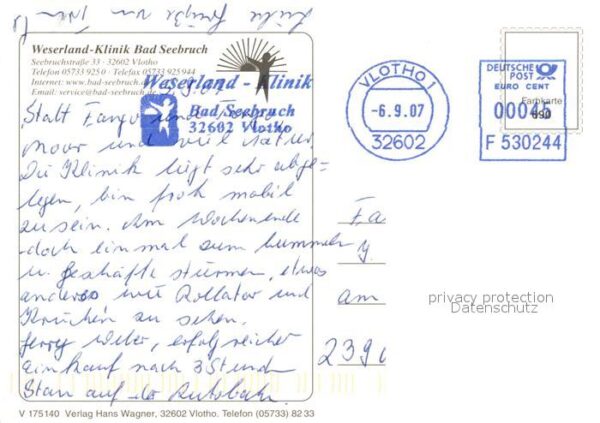 Liebe Grüße von
Weserland-Klinik Bad Seebruch
Seebruchstraße 33 · 32602 Vlotho
Telefon 05733 925 0 · Telefax 05733 925 944
Internet: www.bad-seebruch.de
Email: service@bad-seebruch.de
Weserland - Klinik
Bad Seebruch
32602 Vlotho
VLOTHO 1
-6.9.07
32602
DEUTSCHE
POST
EURO CENT
0004
F 530244
Farbkarte
690
Statt Fango und
Moor und viel Natur.
Die Klinik liegt sehr abge-
legen, bin froh mobil
zu sein. Am Wochenende
doch einmal zum bummeln
u. Geschäfte stürmen, etwas
anderes wie Rollator und
Krücken zu sehen.
erfolgreicher
Einkauf nach 3 Stunden
Stau auf der Autobahn.
Fa
am
239
privacy protection
Datenschutz
V 175140 Verlag Hans Wagner, 32602 Vlotho. Telefon (05733) 82 33